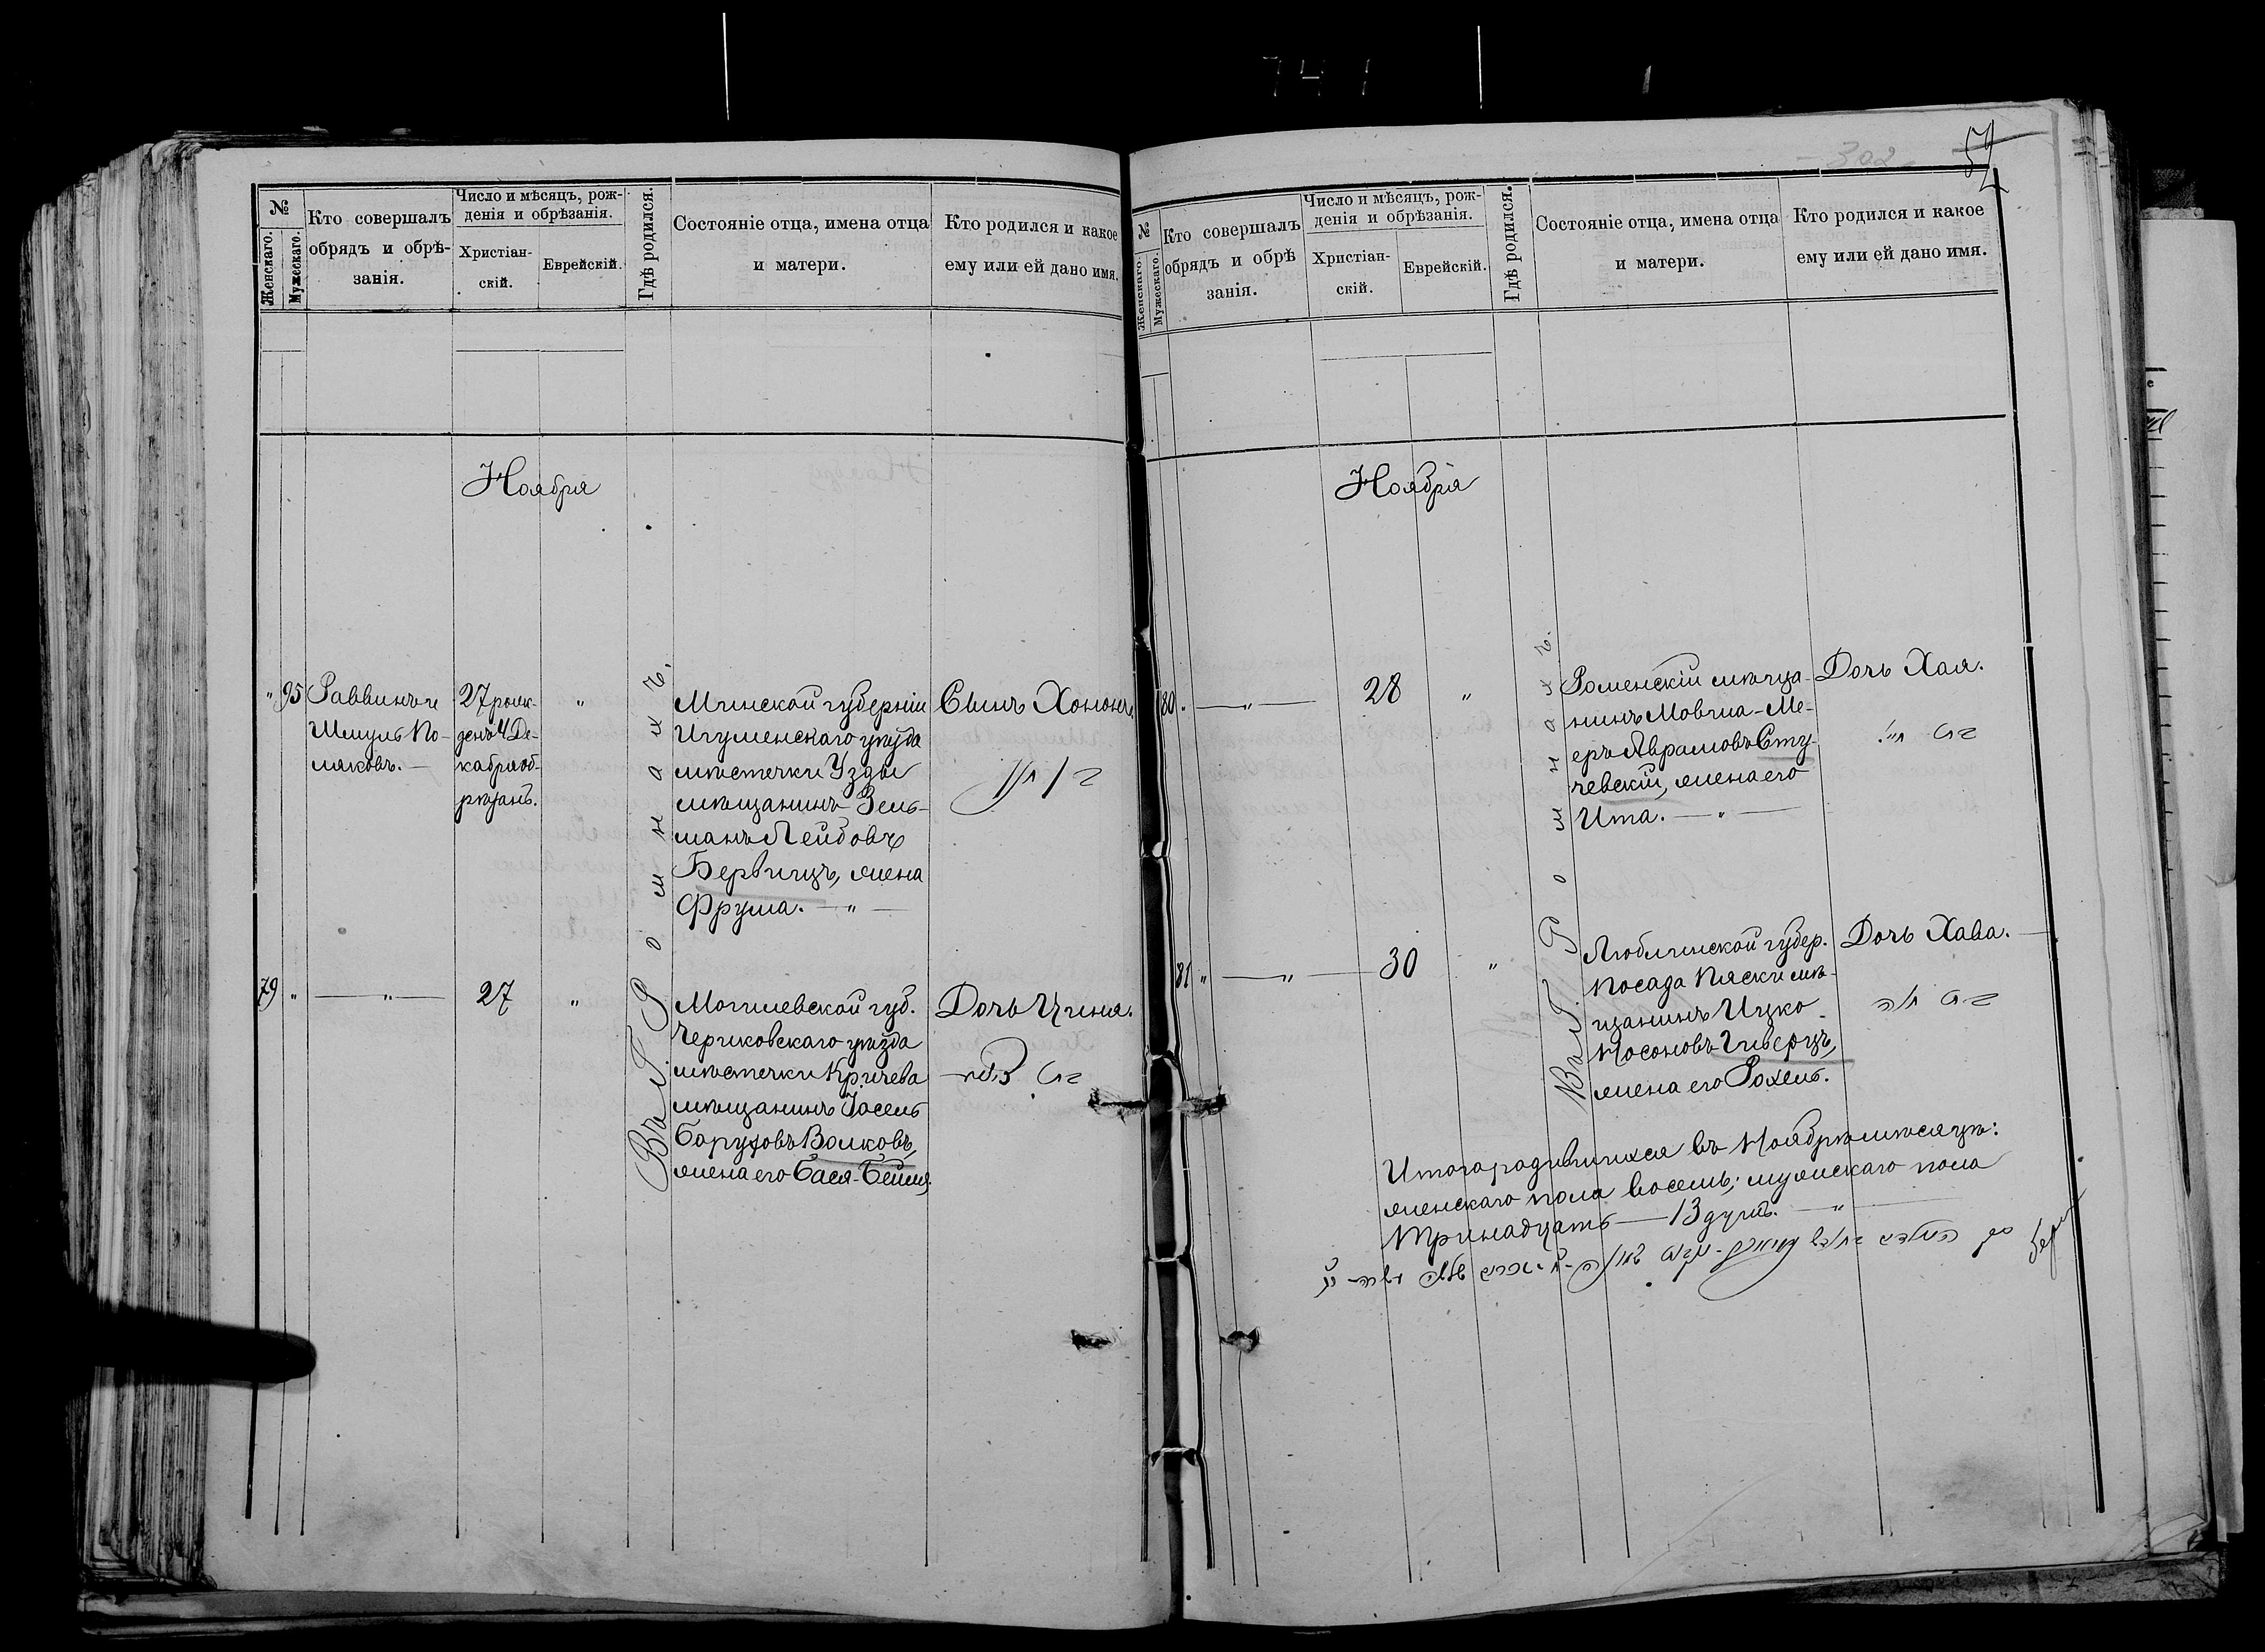 741
302
52
№
Женскаго.
Мужескаго.
Кто совершалъ
обрядъ и обрѣ-
занія.
Число и мѣсяцъ, рож-
денія и обрѣзанія.
Христіан-
скій.
Еврейскій.
Гдѣ родился.
Состояніе отца, имена отца
и матери.
Кто родился и какое
ему или ей дано имя.
Ноября
" 95
Раввинъ и
Шмуль По-
ляковъ.
27 рож-
денъ 4 Де-
кабря об-
рѣзанъ.
"
Въ Г. Ромнахъ.
Минской губерніи
Игуменскаго уѣзда
мѣстечки Узды
мѣщанинъ Зель-
манъ Лейбовъ
Бервицъ, жена
Фрума. — " —
Сынъ Хононъ.
79 "
— " —
27
"
Могилевской губ.
Чериковскаго уѣзда
мѣстечки Кричева
мѣщанинъ Іосель
Боруховъ Волковъ,
жена его Бася-Бейля
Дочь Ципа.
№
Женскаго.
Мужескаго.
Кто совершалъ
обрядъ и обрѣ
занія.
Число и мѣсяцъ, рож-
денія и обрѣзанія.
Христіан-
скій.
Еврейскій.
Гдѣ родился.
Состояніе отца, имена отца
и матери.
Кто родился и какое
ему или ей дано имя.
Ноября
80.
— " —
28
"
Въ Г. Ромнахъ.
Роменскій мѣща-
нинъ Мовша-Ме-
еръ Аврамовъ Сту-
чевскій, жена его
Ита. — " —
Дочь Хая.
81 "
— " —
30
"
Люблинской губер.
посада Пяски мѣ-
щанинъ Ицко
Носоновъ Гиверцъ,
жена его Рохель.
Дочь Хава.
Итого родившихся въ Ноябрѣ мѣсяцѣ:
женскаго пола восемь; мужескаго пола
тринадцать — 13 душъ. — " —